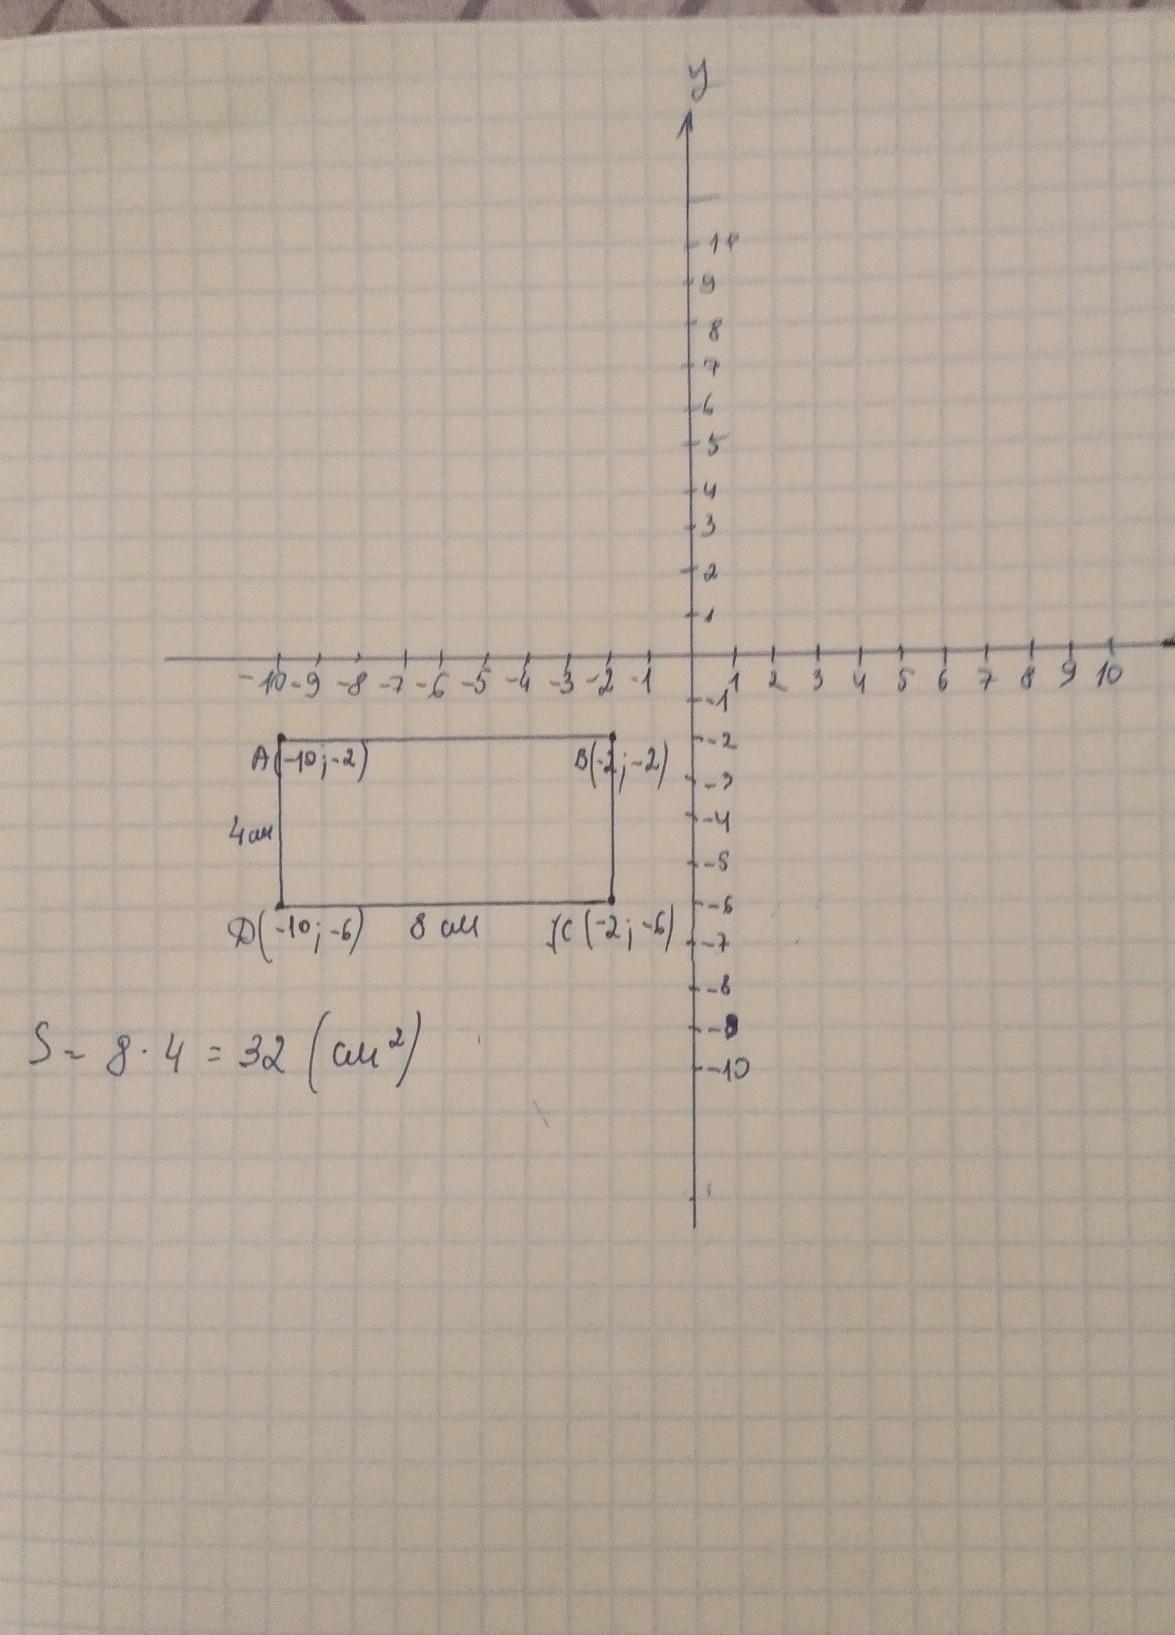 y
10
9
8
7
6
5
4
3
2
1
-10 -9 -8 -7 -6 -5 -4 -3 -2 -1 1 2 3 4 5 6 7 8 9 10
-1
-2
A(-10; -2) B(-2; -2)
-3
4 см -4
-5
-6
D(-10; -6) 8 см C (-2; -6)
-7
-8
-9
S = 8 · 4 = 32 (см²)
-10